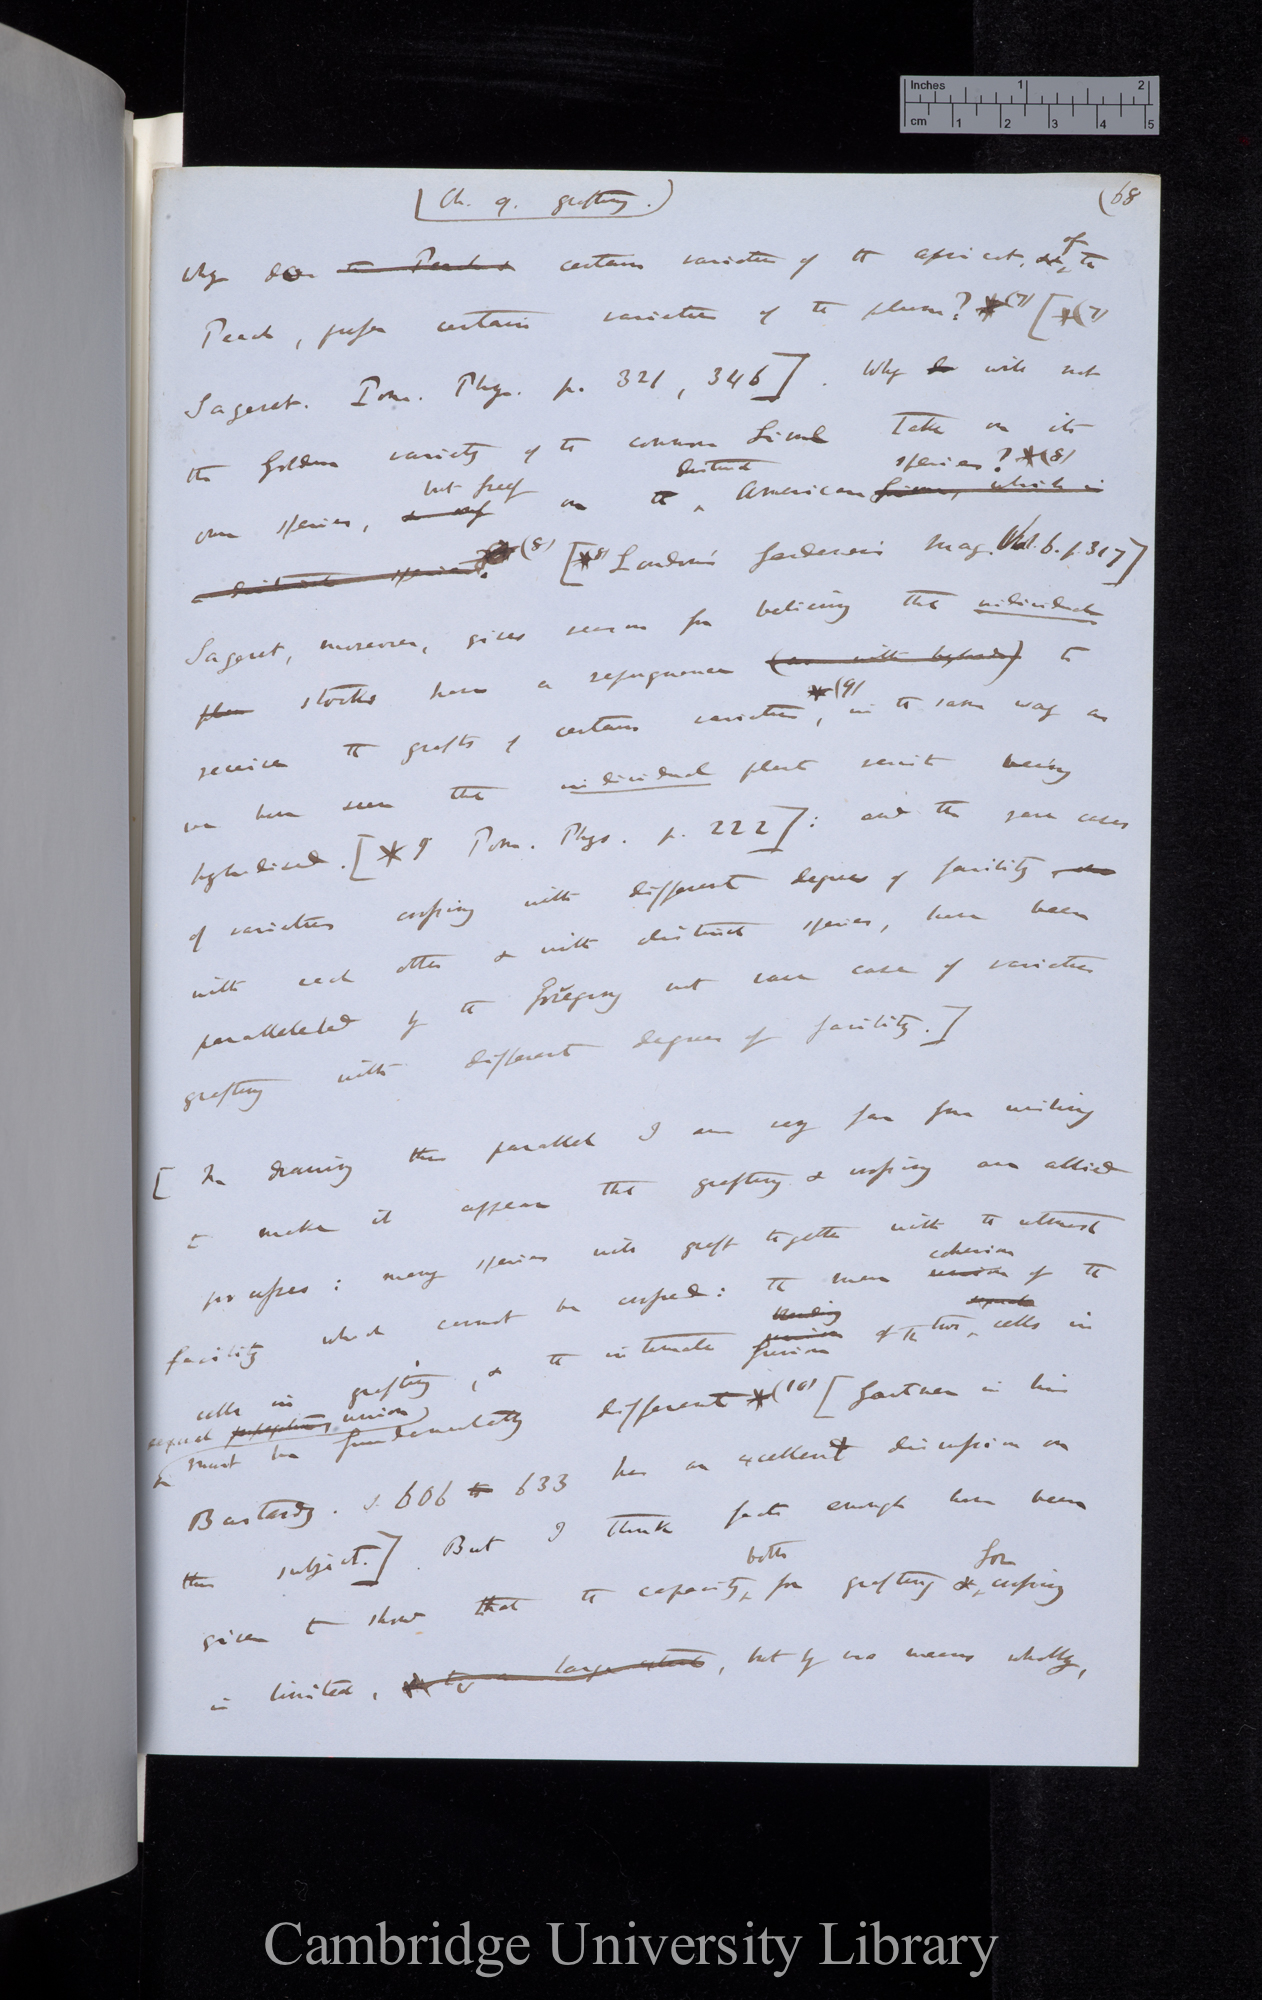 Inches 1 2
cm 1 2 3 4 5
[Ch. 9. grafting.)
(68
Why does the Peach & certain varieties of the apricot, & of the
Peach, prefer certain varieties of the plum? *(7) [*(7)
Sageret. Pom. Phys. p. 321, 346]. Why do will not
the golden variety of the common Lime take on its
own species, & only but freely on the distinct American Lime, which is species? *(8)
a distinct species? *(8) [*8) Loudon's Gardener's Mag. Vol. 6. p. 317]
Sageret, moreover, gives reason for believing that individual
plan stocks have a repugnance (as with hybrids) to
receive the grafts of certain varieties, *(9) in the same way as
we have seen that individual plants resist being
hybridised. [*9 Pom. Phys. p. 222]: and the rare cases
of varieties crossing with different degrees of facility
with each other & with distinct species, have been
paralleled by the foregoing not rare case of varieties
grafting with different degrees of facility.]
[In drawing this parallel I am very far from wishing
to make it appear that grafting & crossing are allied
processes: many species will graft together with the utmost
facility which cannot be crossed: the mere union cohesion of the
cells in grafting, & the intimate union blending fusion of the two separate cells in
sexual union
must be fundamentally different *(10) [Gartner in his
Bastardz. s. 606 to 633 has an excellent discussion on
this subject.] But I think facts enough have been
given to show that the capacity, both for grafting & for crossing
is limited, to a large extent, but by no means wholly,
Cambridge University Library